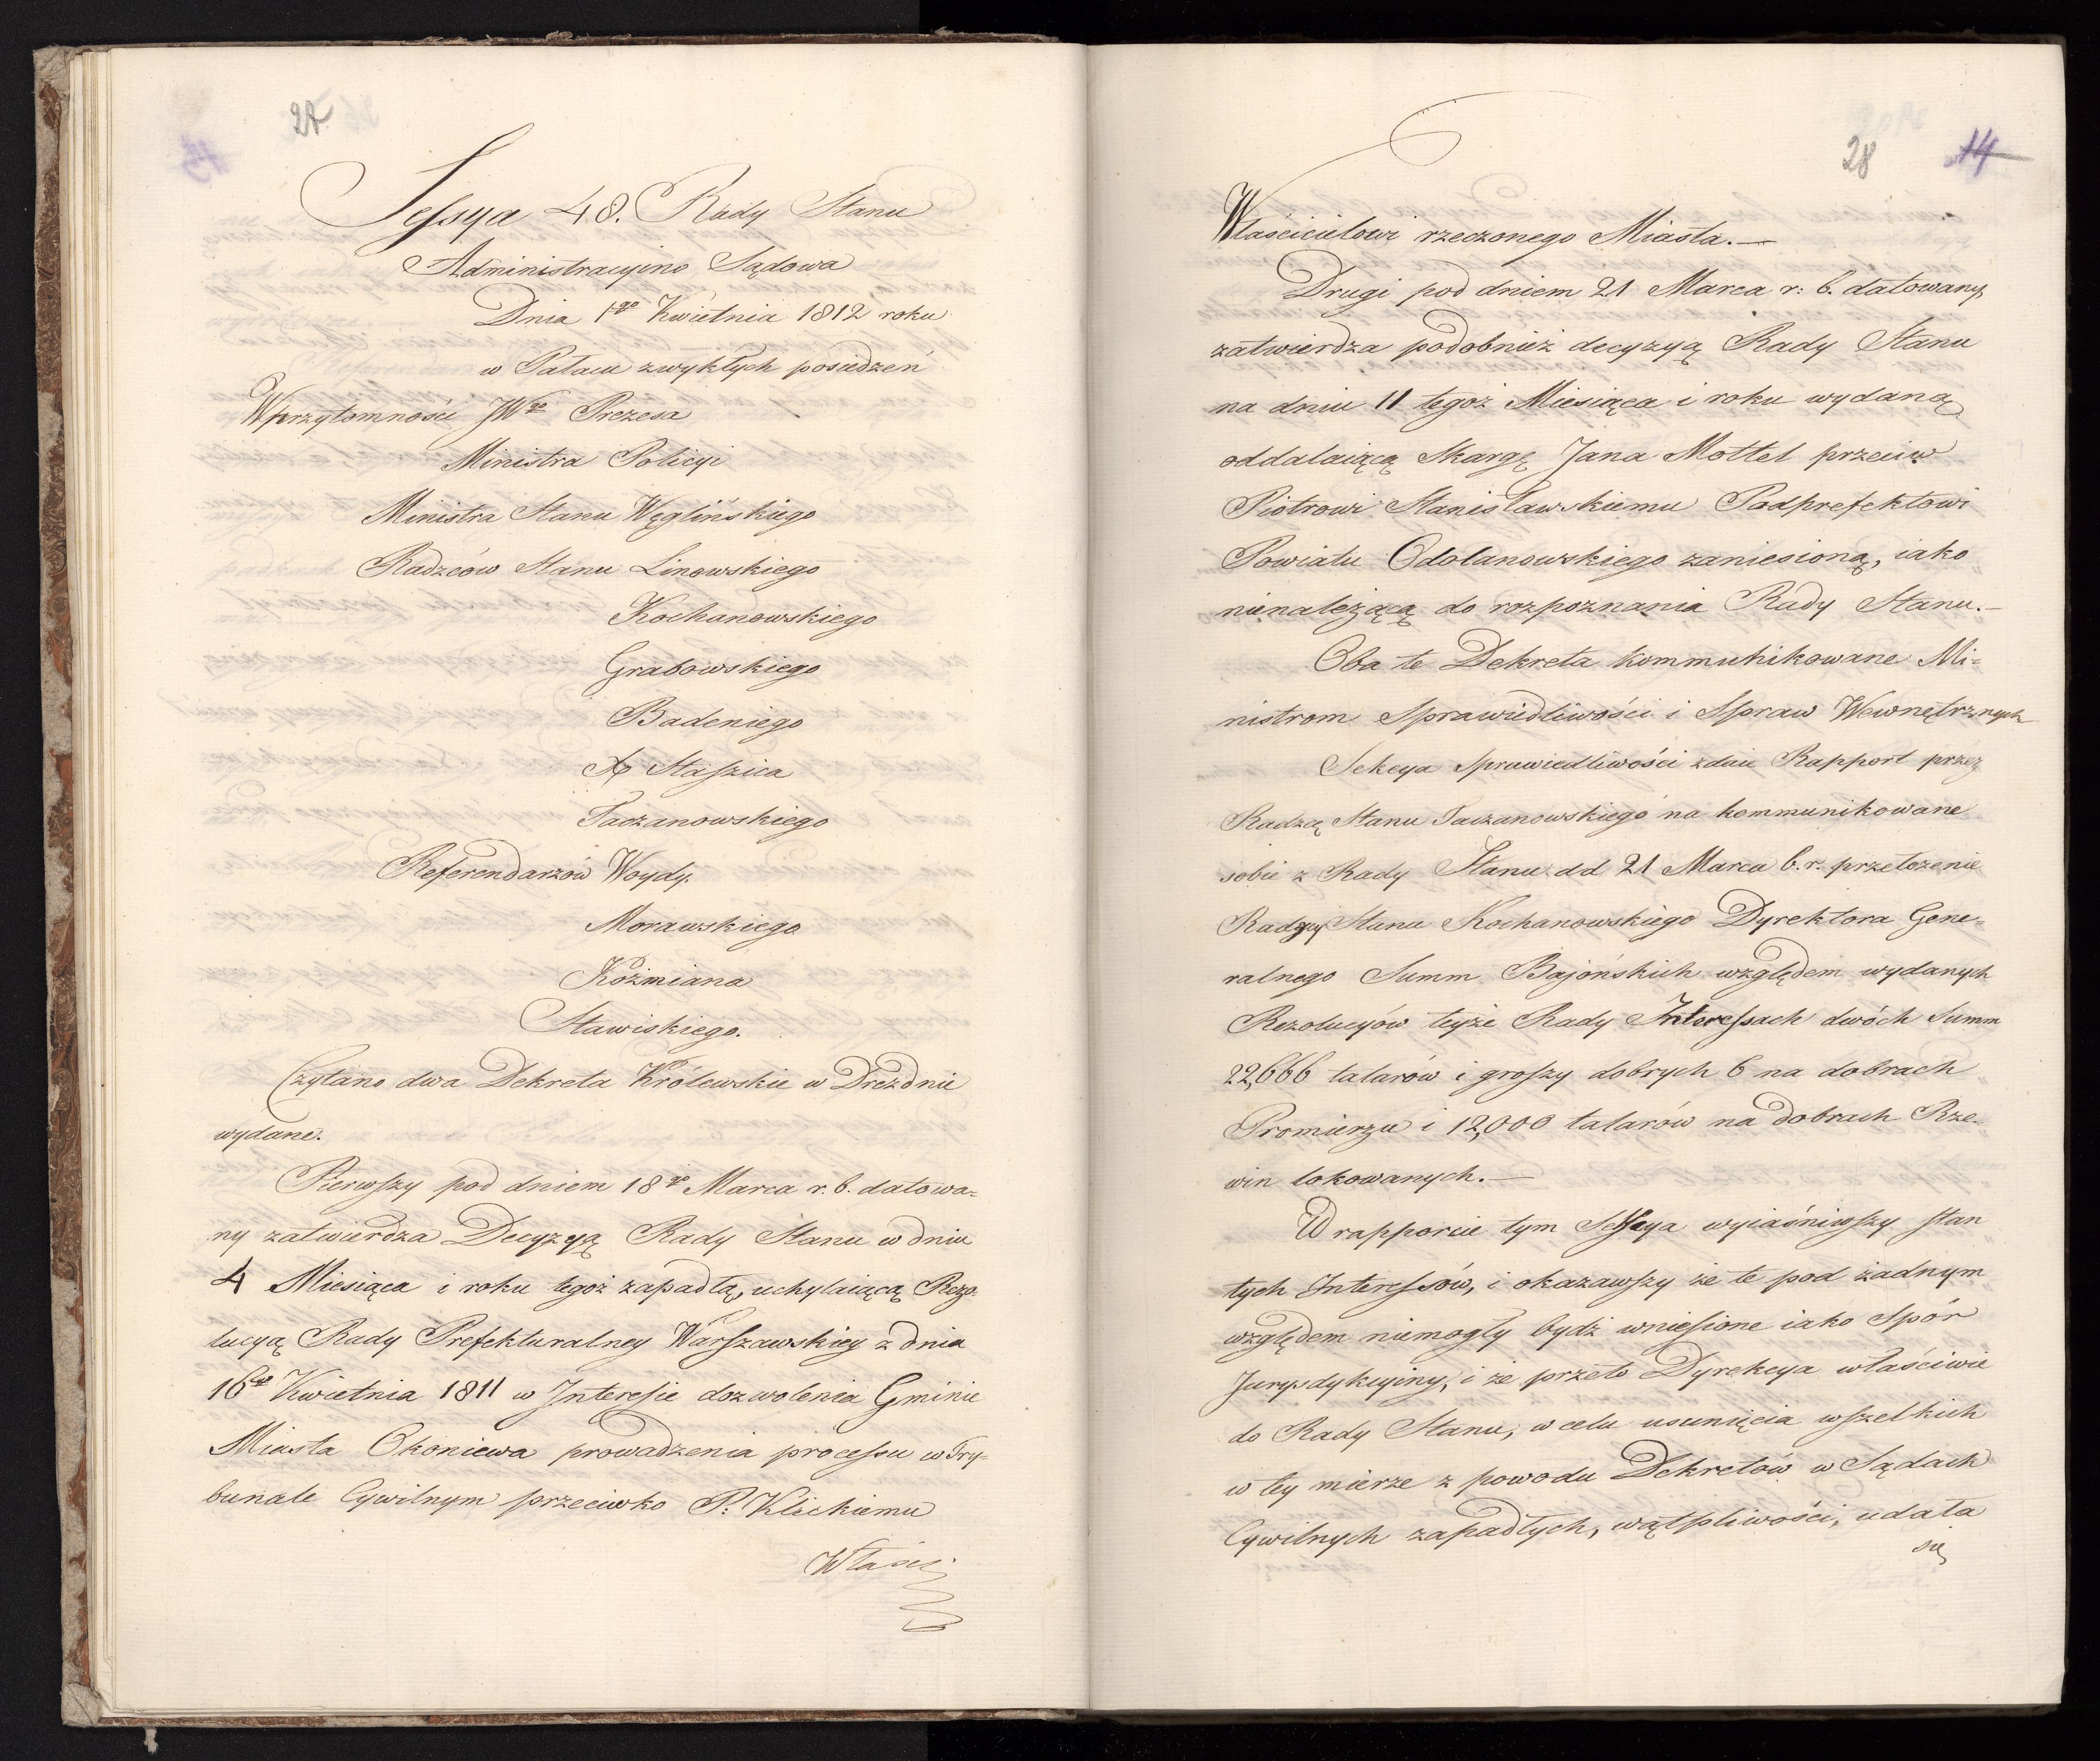 27
Sessya 48. Rady Stanu
Administracyino Sądowa
Dnia 1go Kwietnia 1812 roku
w Pałacu zwykłych posiedzeń
W przytomności JWgo Prezesa
Ministra Policyi
Ministra Stanu Węglińskiego
Radzców Stanu Linowskiego
Kochanowskiego
Grabowskiego
Badeniego
X Staszica
Taczanowskiego
Referendarzów Woydy
Morawskiego
Koźmiana
Stawiskiego.
Czytano dwa Dekreta Królewskie w Dreznie
wydane.
Pierwszy pod dniem 18go Marca r. b. datowa=
ny zatwierdza Decyzyą Rady Stanu w dniu
4 Miesiąca i roku tegoż zapadłą, uchylaiącą Rezo=
lucyą Rady Prefekturalney Warszawskiey z dnia
16go Kwietnia 1811 w Interesie dozwolenia Gminie
Miasta Okoniewa prowadzenia processu w Try=
bunale Cywilnym przeciwko P. Klickiemu
Właści
28 14
Właścicielowi rzeczonego Miasta.—
Drugi pod dniem 21 Marca r: b. datowany
zatwierdza podobnież decyzyą Rady Stanu
na dniu 11 tegoż Miesiąca i roku wydaną
oddalaiącą Skargę Jana Mottel przeciw
Piotrowi Stanisławskiemu Podprefektowi
Powiatu Odolanowskiego zaniesioną, iako
nienależącą do rozpoznania Rady Stanu.—
Oba te Dekreta kommunikowane Mi=
nistrom Sprawiedliwości i Spraw Wewnętrznych
Sekcya Sprawiedliwości zdaie Rapport przez
Radzcę Stanu Taczanowskiego na kommunikowane
sobie z Rady Stanu dd 21 Marca b. r. przełożenie
Radzcy Stanu Kochanowskiego Dyrektora Gene=
ralnego Summ Bajońskich względem wydanych
Rezolucyów teyże Rady Interessach dwóch Summ
22,666 talarów i groszy dobrych 6 na dobrach
Promierzu i 12,000 talarów na dobrach Rze=
win lokowanych.—
W rapporcie tym Sessya wyiaśniwszy stan
tych Interessów, i okazawszy że te pod żadnym
względem niemogły bydź wniesione iako Spór
Jurysdykcyiny, i że przeto Dyrekcya właściwie
do Rady Stanu, w celu usunięcia wszelkich
w tey mierze z powodu Dekretów w Sądach
Cywilnych zapadłych, wątpliwości, udała
się